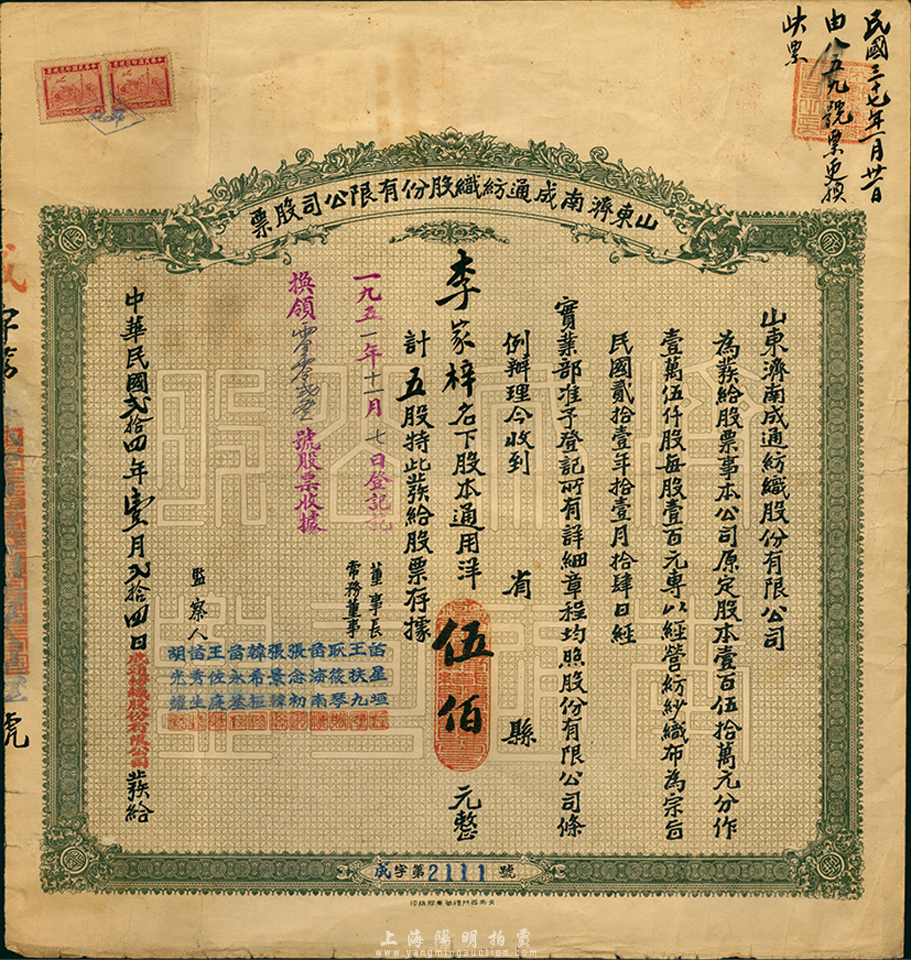 民國三十七年一月廿日
由八五九號票更換
此票
山東濟南成通紡織股份有限公司股票
山東濟南成通紡織股份有限公司
為蕟給股票事本公司原定股本壹百伍拾萬元分作
壹萬伍仟股每股壹百元專以經營紡紗織布為宗旨
民國貳拾壹年拾壹月拾肆日經
實業部准予登記所有詳細章程均照股份有限公司條
例辦理今收到 省 縣
李家梓名下股本通用洋伍佰元整
計五股特此蕟給股票存據
一九五一年十一月七日登記訖
換領 號股票收據
董事長 苗星垣
常務董事 王扶九
耿筱琴
苗海南
張念初
張景韓
韓希桓
苗永基
王佐庭
監察人 苗秀生
胡光耀
中華民國弍拾四年壹月弍拾四日成通紡織股份有限公司蕟給
成字第2111號
號
上海陽明拍賣
www.yangmingauction.com